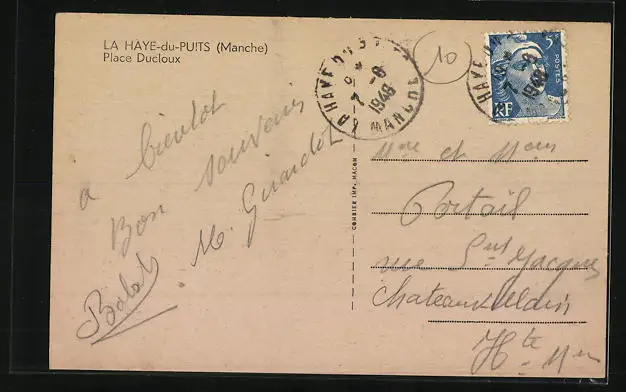 LA HAYE-du-PUITS (Manche)
Place Ducloux
à bientôt
Bon souvenir
M. Girardot
LA HAYE DU PUITS
7 -8
1948
MANCHE
10
5F
POSTES
RF
COMBIER IMP. MACON
Mme et Mons
Portail
rue St Jacques
Chateauvillain
Hte-Mne